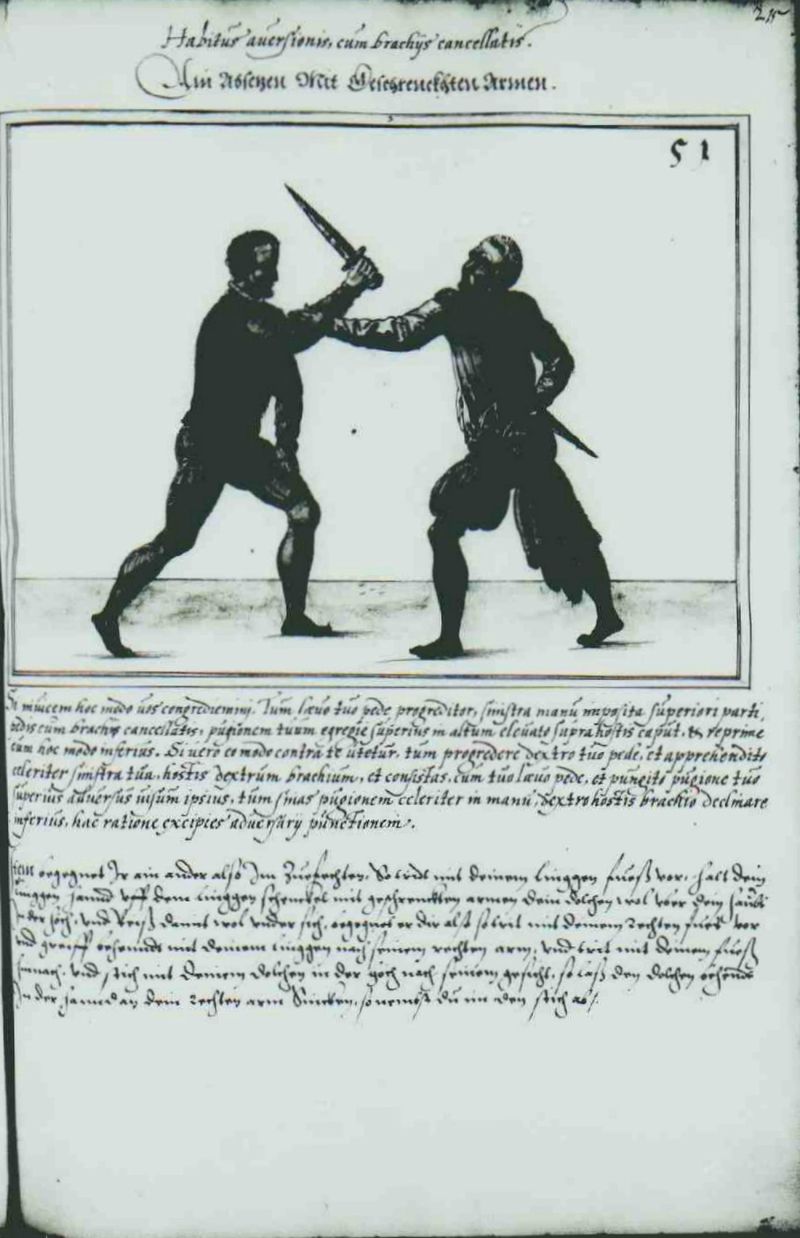 215
Habitus aversionis, cum brachijs cancellatis.
Ain Absetzen Mit Geschrenckhten Armen.
51
Si invicem hoc modo vos congredieminj. Tum laevo tuo pede progreditor, sinistra manu imposita superiori parti
pedis cum brachijs cancellatis, pugionem tuum egregie superius in altum elevato supra hostis caput, et reprime
eum hoc modo inferius. Si vero eo modo contra te utetur, tum progredere dextro tuo pede, et apprehendito
celeriter sinistra tua, hostis dextrum brachium, et consistas, cum tuo laevo pede, et pungito pugione tuo
superius adversus visum ipsius, tum sinas pugionem celeriter in manu, dextro hostis brachio declinare
inferius, hac ratione excipies adversarij punctionem.
Item begegnet Ir ain ander also Im Zuefechten, So trit mit deinem linggen fuess vor, halt dein
linggen hannd uff dem linggen schenckel mit geschrenckten armen dein dolchen wol uber dein haubt
In der höch, und Reiss damit wol under sich, begegnet er dir also so trit mit deinem Rechten fues vor
und greiff behennds mit deinem linggen nach seinem rechten arm, und trit mit deinem fuess
hinnach, und stich mit Deinem dolchen in der höch nach seinem gesicht, so lass den dolchen behend
In der hannd an dein Rechten arm Sincken, so nemest du im den stich ab.